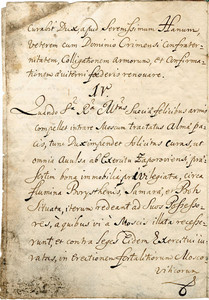 Curabit Dux apud Serenissimum Hanum,
veterem cum Dominio Crimensi Confrater-
nitatem, Colligationem Armorum, et Conforma-
tionem foederis renovare.
IV.
Quando Sua Ra Mtas Sueciæ felicibus armis
compellet intrare Moscum tractatus Almæ pa-
cis, tunc Dux impendet sollicitas curas, ut
omnia Avulsa ab Exercitu Zaporoviensi, præ-
sertim bona immobilia, privilegiata, circa
flumina Borysthenis, Samara, et
situata, iterum redeant ad suos Possesso-
res, a quibus vi à Moscis illata recesse-
runt, et contra leges Eidem Exercitui iu-
ratas, in erectionem fortalitiorum Mosco-
viticorum